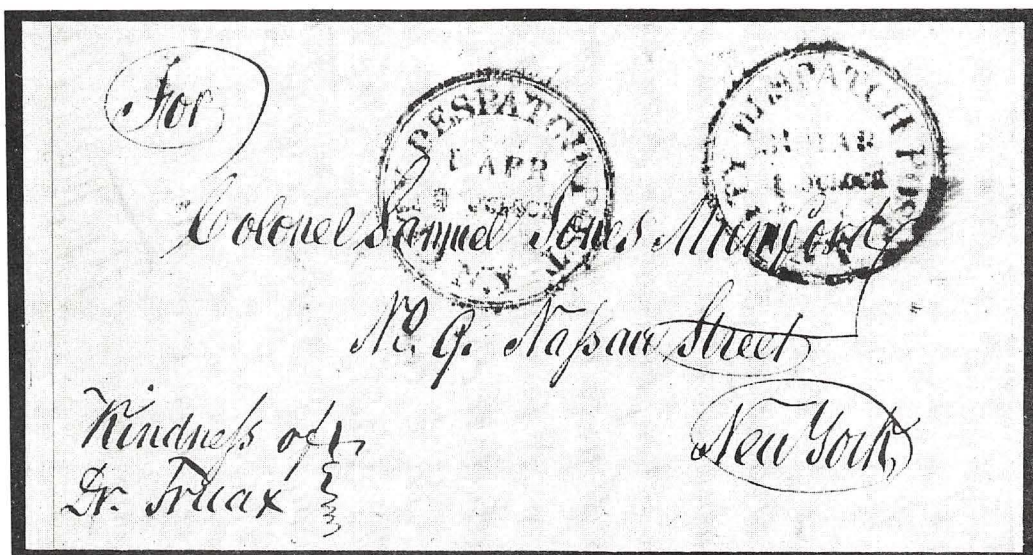 For
DESPATCH POST
APR
N.Y.
CITY DESPATCH POST
MAR
O'CLOCK
Colonel Samuel Jones
No. 9. Nassau Street
New York,
Kindness of
Dr. Truax